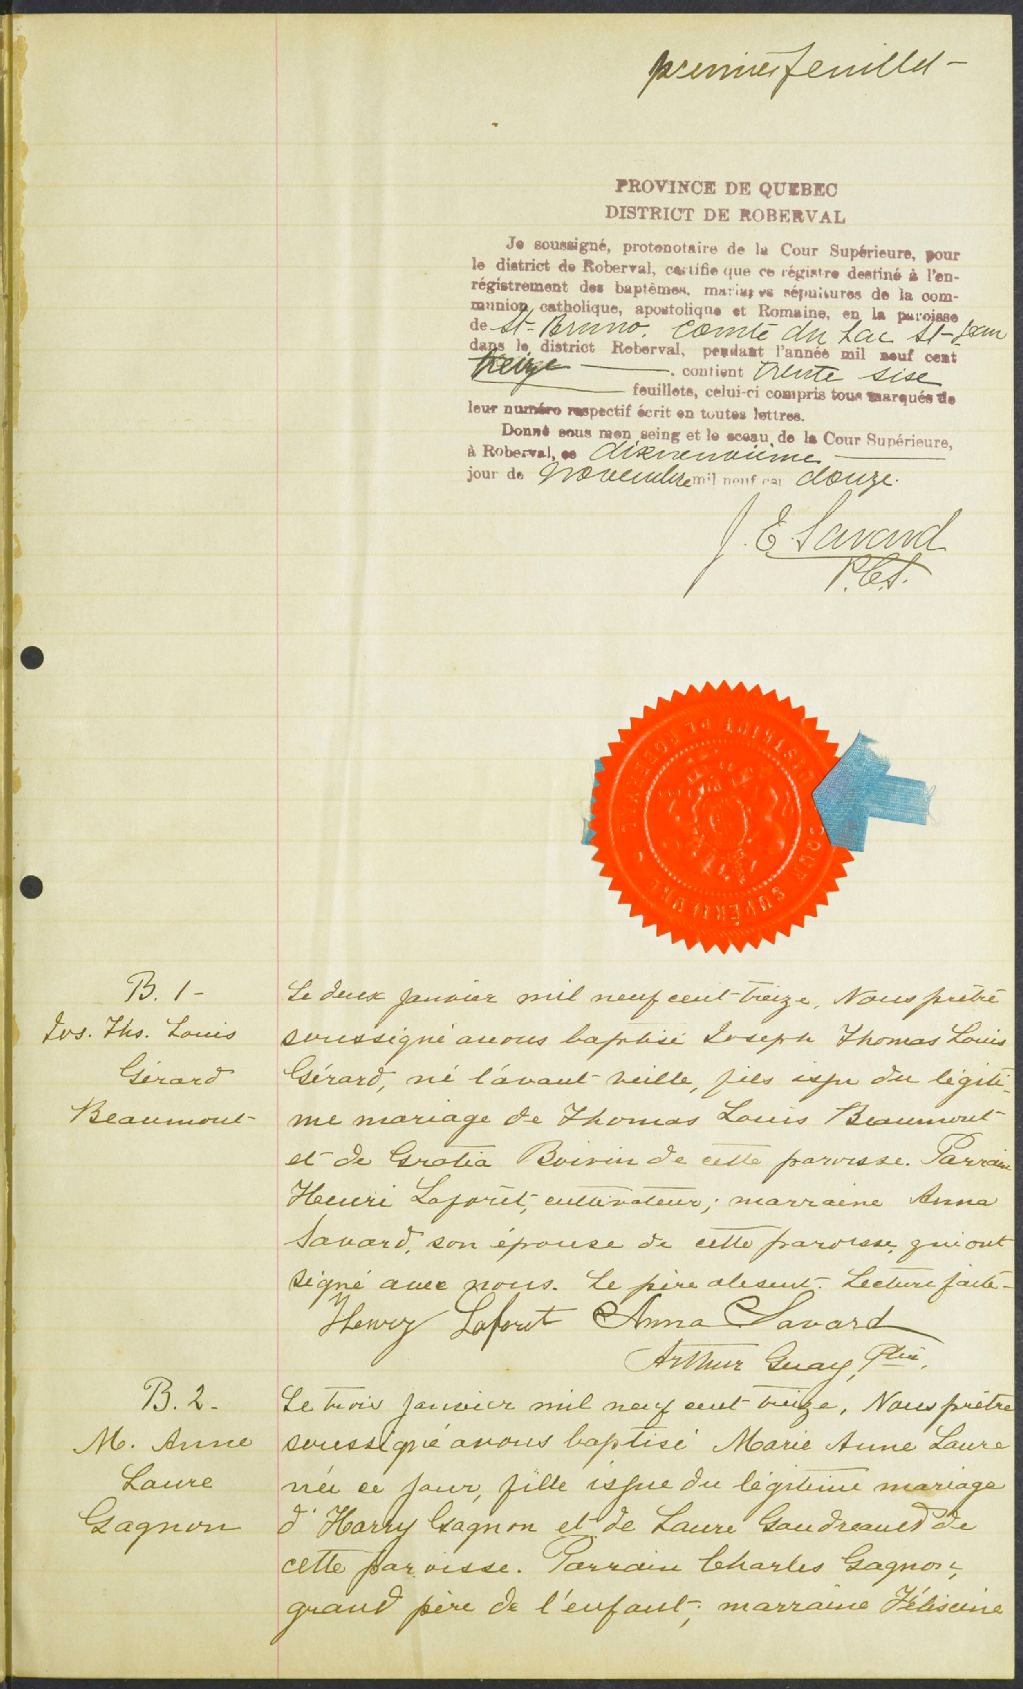 premier feuillet -
PROVINCE DE QUEBEC
DISTRICT DE ROBERVAL
Je soussigné, protonotaire de la Cour Supérieure, pour
le district de Roberval, certifie que ce régistre destiné à l'en-
régistrement des baptêmes, mariages sépultures de la com-
munion catholique, apostolique et Romaine, en la paroisse
de St-Bruno. Comté du Lac St-Jean
dans le district Roberval, pendant l'année mil neuf cent
treize . contient trente sise
feuillets, celui-ci compris tous marqués de
leur numéro respectif écrit en toutes lettres.
Donné sous mon seing et le sceau de la Cour Supérieure,
à Roberval, ce dixneuvième
jour de Novembre mil neuf cent douze.
J. E. Savard
P.C.S.
DISTRICT DE ROBERVAL
COUR SUPÉRIEURE
B. 1 -
Jos. Ths. Louis
Gérard
Beaumont
Le deux janvier mil neuf cent treize, Nous prêtre
soussigné avons baptisé Joseph Thomas Louis
Gérard, né l'avant veille, fils issu du légiti-
me mariage de Thomas Louis Beaumont
et de Gratia Boivin de cette paroisse. Parrain
Henri Laforêt, cultivateur; marraine Anna
Savard, son épouse de cette paroisse, qui ont
signé avec nous. Le père absent. Lecture faite -
Henry Laforet Anna Savard
Arthur Guay, Ptre.
B. 2 -
M. Anne
Laure
Gagnon
Le trois janvier mil neuf cent treize, Nous prêtre
soussigné avons baptisé Marie Anne Laure
née ce jour, fille issue du légitime mariage
d'Harry Gagnon et de Laure Gaudreault de
cette paroisse. Parrain Charles Gagnon,
grand père de l'enfant; marraine